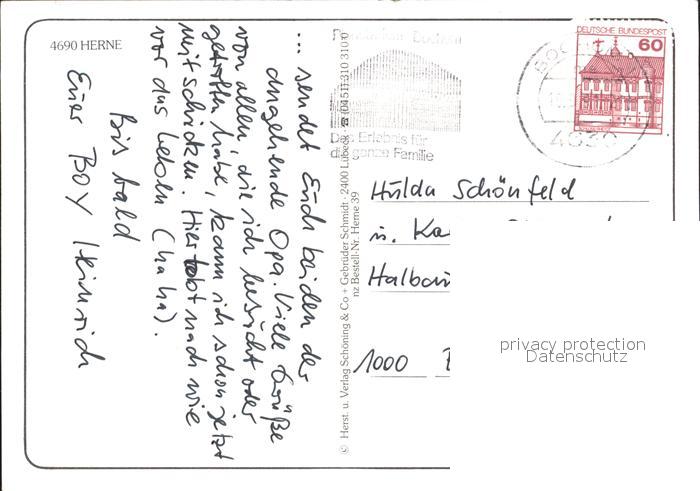 4690 HERNE
... sendet Euch beiden der
angehende Opa. Viele Grüße
von allen, die ich besucht oder
getroffen habe, kann ich schon jetzt
mitschicken. Hier tobt nach wie
vor das Leben (haha).
Bis bald
Euer BOY Heinrich
© Herst. u. Verlag Schöning & Co + Gebrüder Schmidt · 2400 Lübeck · ☎ (0451) 310 310
nz Bestell-Nr. Herne 39
Bochum
Das Erlebnis für
die ganze Familie
BOCHUM
4630
DEUTSCHE BUNDESPOST
60
Hulda Schönfeld
u. Ka
Halbau
1000
privacy protection
Datenschutz